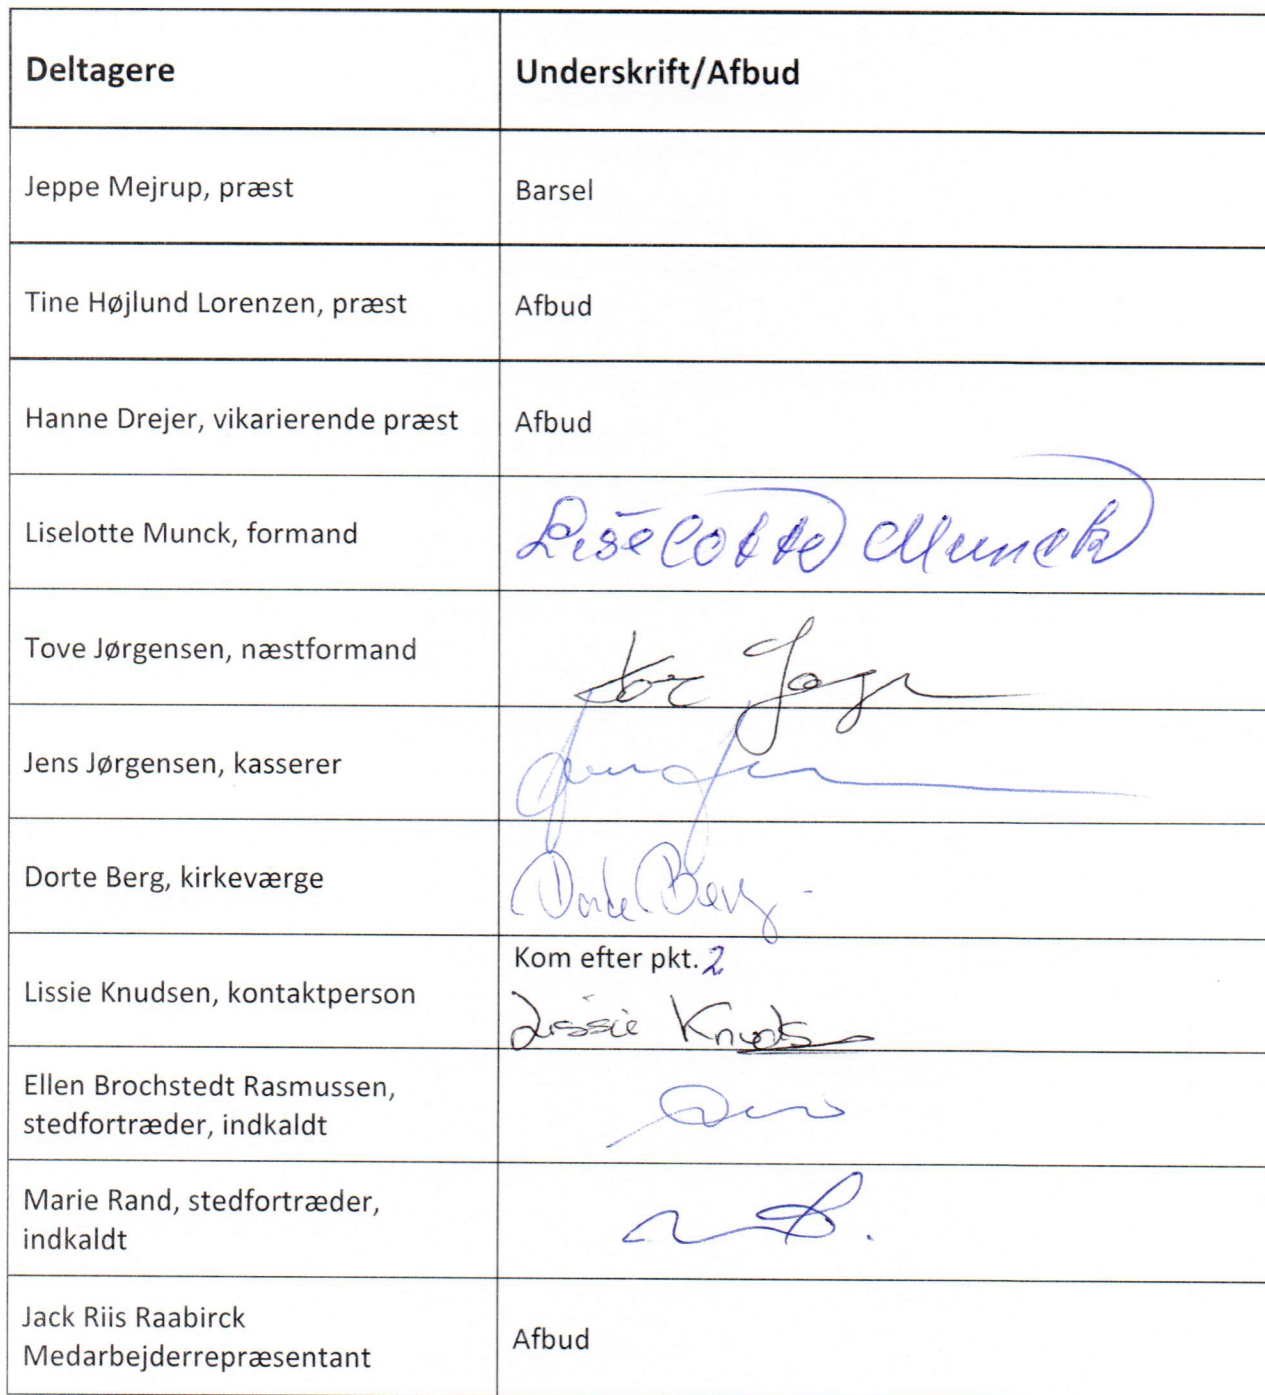 Deltagere
Underskrift/Afbud
Jeppe Mejrup, præst
Barsel
Tine Højlund Lorenzen, præst
Afbud
Hanne Drejer, vikarierende præst
Afbud
Liselotte Munck, formand
Liselotte Munck
Tove Jørgensen, næstformand
Jens Jørgensen, kasserer
Dorte Berg, kirkeværge
Dorte Berg
Kom efter pkt. 2
Lissie Knudsen, kontaktperson
Lissie Knuds
Ellen Brochstedt Rasmussen,
stedfortræder, indkaldt
Marie Rand, stedfortræder,
indkaldt
Jack Riis Raabirck
Medarbejderrepræsentant
Afbud